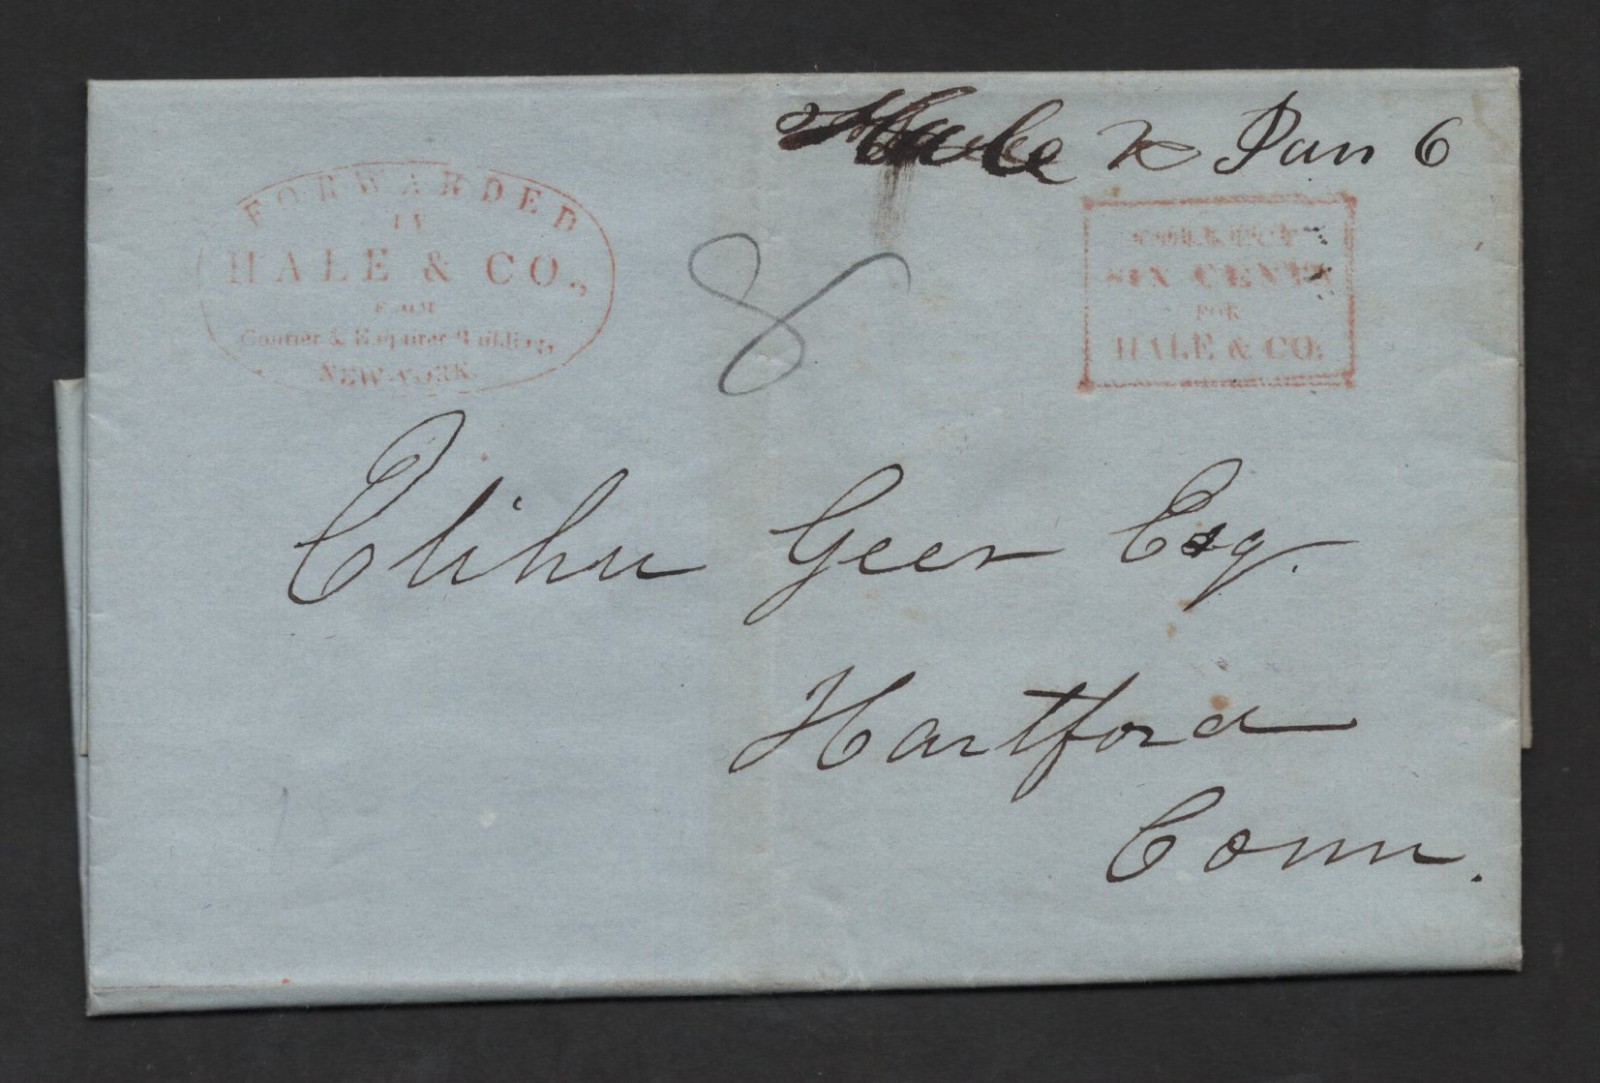 Hale & Jan 6
FORWARDED
BY
HALE & CO.,
FROM
Courier & Enquirer Building,
NEW-YORK.
8
COLLECT
SIX CENTS
FOR
HALE & CO.
Elihu Geer Esq.
Hartford
Conn.